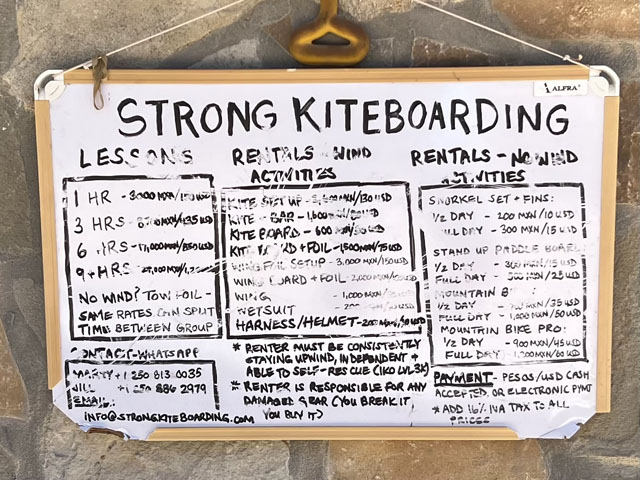 ALFRA
STRONG KITEBOARDING
LESSONS
1 HR - 3000 MXN/150 USD
3 HRS - MXN/435 USD
6 HRS - MXN/850 USD
9+HRS -
NO WIND? TOW FOIL -
SAME RATES. CAN SPLIT
TIME BETWEEN GROUP
CONTACT-WHATSAPP
MARTY +1 250 813 0035
+1 250 886 2979
EMAIL:
INFO@STRONGKITEBOARDING.COM
RENTALS - WIND
ACTIVITIES
KITE SET UP - MXN/130 USD
KITE - BAR - MXN/ USD
KITE BOARD - 600 MXN/ USD
KITE BOARD + FOIL - 1,500 MXN/75 USD
WING FOIL SETUP - 3,000 MXN/150 USD
WING BOARD + FOIL - 2,000 MXN/ USD
WING - 1,000 MXN/ USD
WETSUIT - 200
HARNESS/HELMET - 200 MXN/10 USD
* RENTER MUST BE CONSISTENTLY
STAYING UPWIND, INDEPENDENT +
ABLE TO SELF-RESCUE (IKO LVL 3K)
* RENTER IS RESPONSIBLE FOR ANY
DAMAGED GEAR (YOU BREAK IT
YOU BUY IT)
RENTALS - NO WIND
ACTIVITIES
SNORKEL SET + FINS:
1/2 DAY - 200 MXN/10 USD
FULL DAY - 300 MXN/15 USD
STAND UP PADDLE BOARD:
1/2 DAY - 300 MXN/15 USD
FULL DAY - 500 MXN/25 USD
MOUNTAIN
1/2 DAY - MXN/35 USD
FULL DAY - 1,000 MXN/50 USD
MOUNTAIN BIKE PRO:
1/2 DAY - 900 MXN/45 USD
FULL DAY - 1,200 MXN/60 USD
PAYMENT - PESOS/USD CASH
ACCEPTED, OR ELECTRONIC PYMT
* ADD 16% IVA TAX TO ALL
PRICES